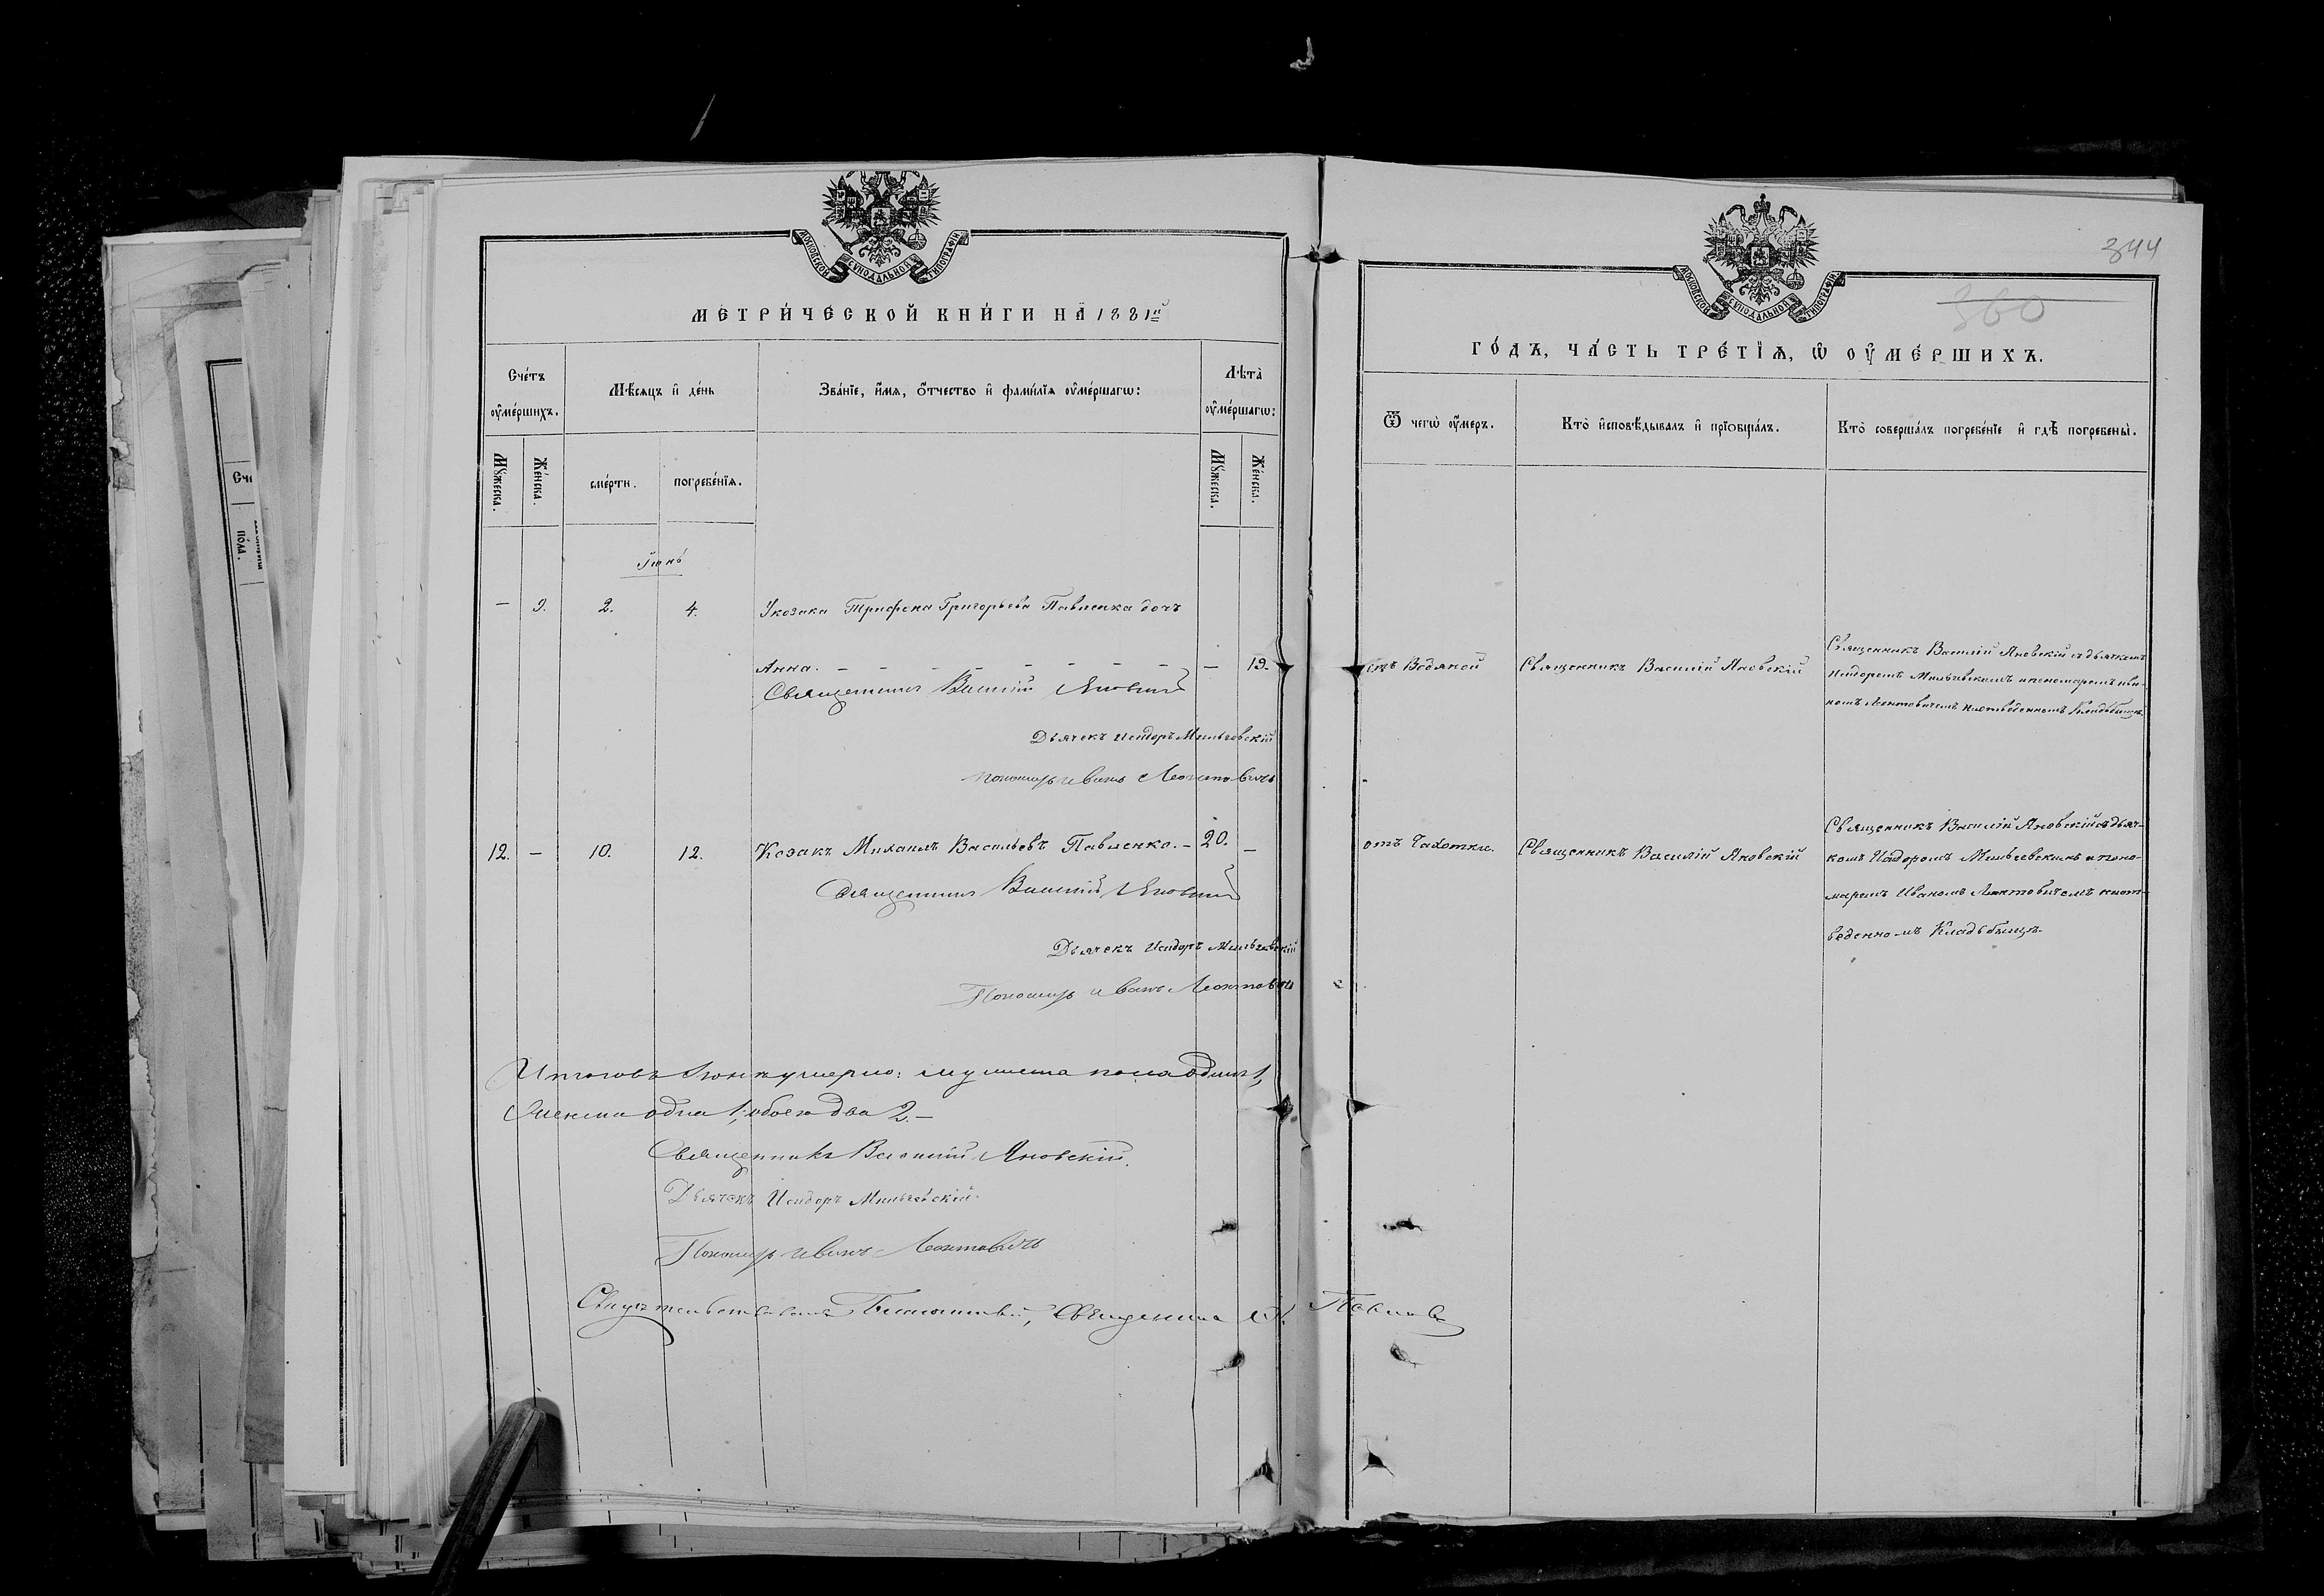 МОСКОВСКОЙ СѴНОДАЛЬНОЙ ТИПОГРАФІИ
МЕТРИ́ЧЕСКОЙ КНИ́ГИ НА̀ 1881й
Сче́тъ ᲂу҆ме́ршихъ.
Мѣ́сяцъ и҆ де́нь
Зва́нїе, и҆́мя, ѻ҆́тчество и҆ фами́лїя ᲂу҆ме́ршагѡ:
Лѣта̀ ᲂу҆ме́ршагѡ:
Мꙋ́жеска.
Же́нска.
сме́рти.
погребе́нїя.
Мꙋ́жеска.
Же́нска.
Іюнь
— 9. 2. 4. У козака Трифона Григорьева Павленка дочь
Анна. — — — — — — — — 19.
Священникъ Василій Яновскій
Дьячекъ Исидоръ Мильчевскій
пономарь Иванъ Леонтовичь
12. — 10. 12. Козакъ Михаилъ Васильевъ Павленко. — 20. —
Священникъ Василій Яновскій
Дьячекъ Исидоръ Мильчевскій
Пономарь Иванъ Леонтовичь
Итого въ Іюнѣ умерло: мужеска пола одинъ 1,
женска одна 1, обоего два 2. —
Священникъ Василій Яновскій.
Дьячекъ Исидоръ Мильчевскій
Пономарь Иванъ Леонтовичь
Священникъ
344
360
МОСКОВСКОЙ СѴНОДАЛЬНОЙ ТИПОГРАФІИ
ГО́ДЪ, ЧА́СТЬ ТРЕ́ТЇѦ, Ѽ ОУ҆МЕ́РШИХЪ.
Ѿ чегѡ̀ ᲂу҆́меръ.
Кто̀ и҆сповѣ́дывалъ и҆ прїобща́лъ.
Кто̀ соверша́лъ погребе́нїе и҆ гдѣ̀ погребены̀.
отъ Водяной
Священникъ Василій Яновскій
Священникъ Василій Яновскій съ дьячкомъ
Исидоромъ Мильчевскимъ и пономаремъ Ива-
номъ Леонтовичемъ на отведенномъ Кладбищѣ.
отъ Чахотки.
Священникъ Василій Яновскій
Священникъ Василій Яновскій съ дьяч-
комъ Исидоромъ Мильчевскимъ и поно-
маремъ Иваномъ Леонтовичемъ на от-
веденномъ Кладбищѣ.